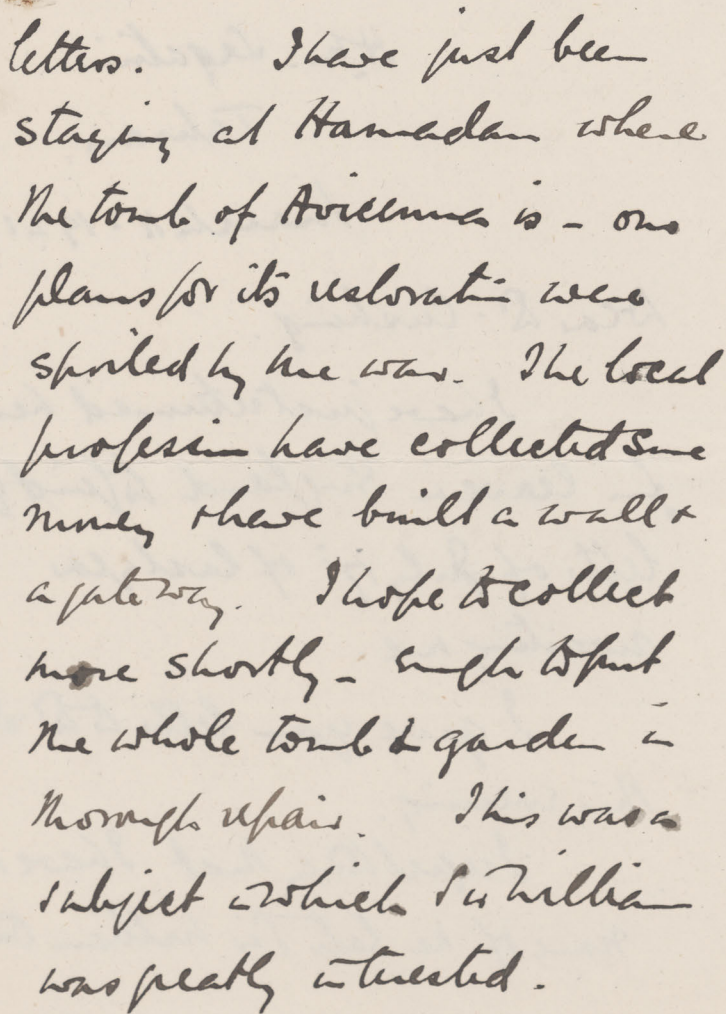 letters. I have just been
staying at Hamadan where
the tomb of Avicenna is - our
plans for its restoration were
spoiled by the war. The local
profession have collected some
money & have built a wall &
a gateway. I hope to collect
more shortly - enough to put
the whole tomb & garden in
thorough repair. This was a
subject in which Sir William
was greatly interested.